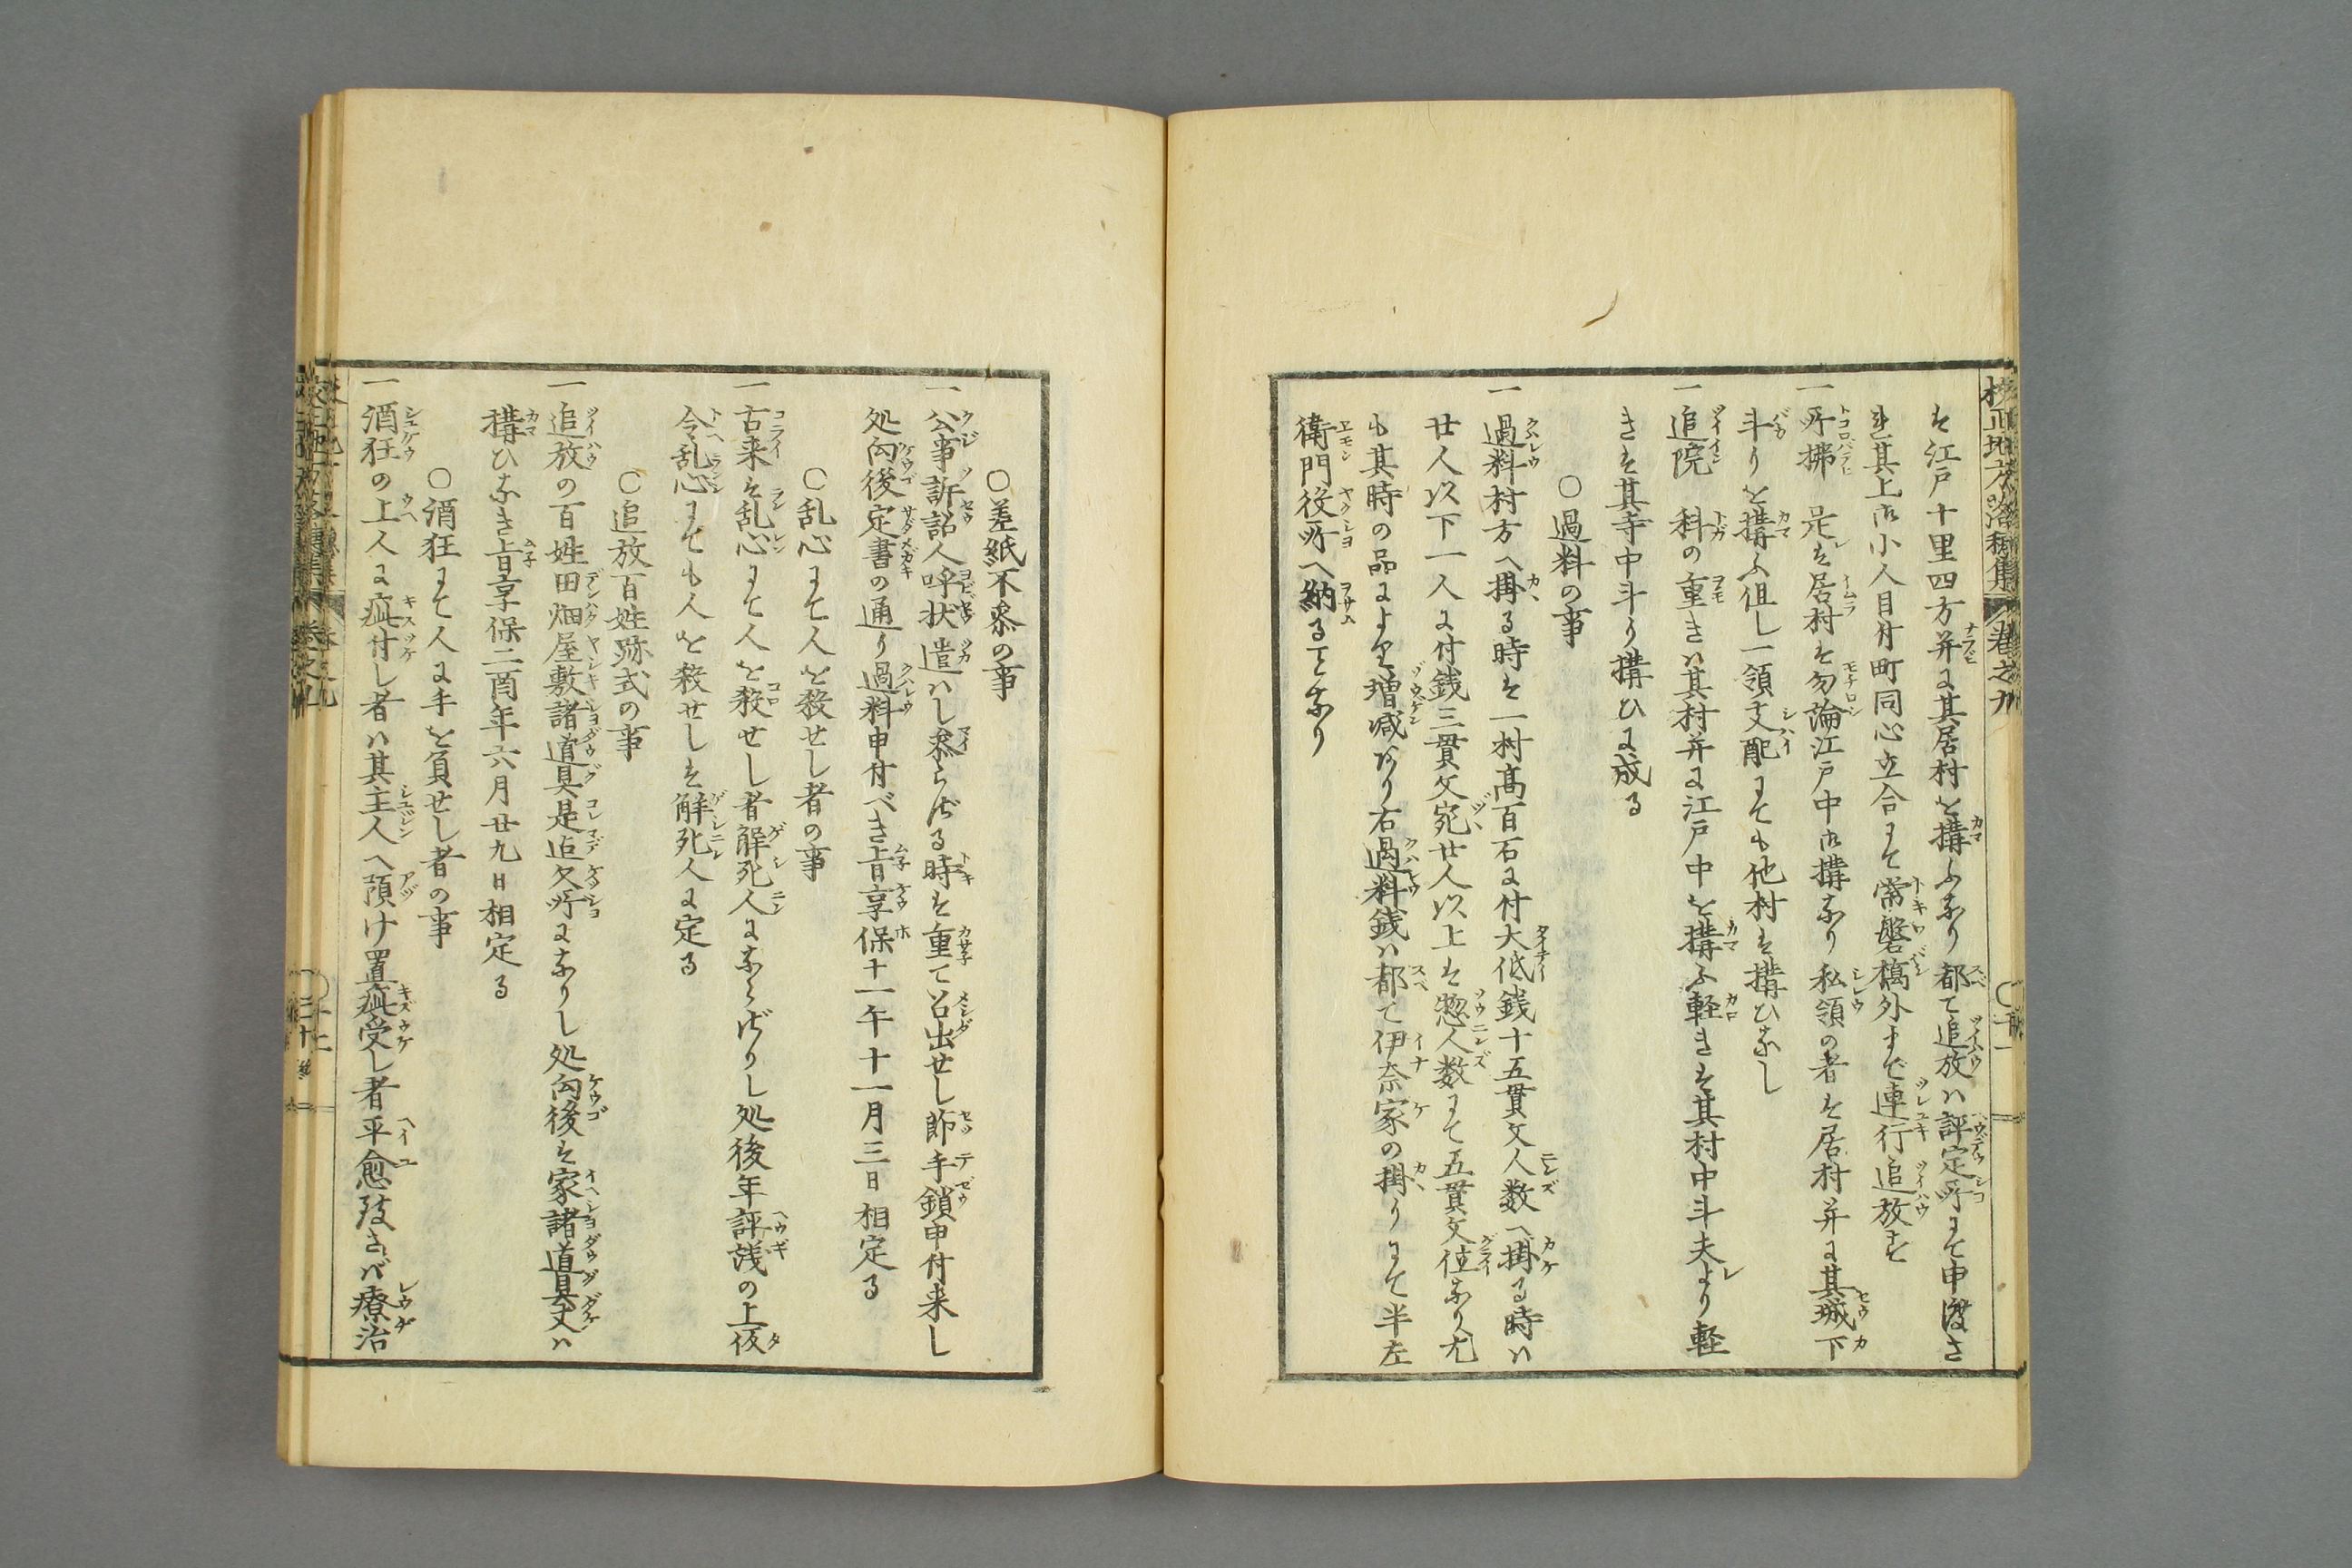 校正地方落穂集 巻之九
は江戸十里四方并に其居村を構ふなり都て追放ハ評定所にて申渡さ
れ其上御小人目付町同心立合にて常盤橋外まで連行追放す
一所拂 是は居村は勿論江戸中御構なり私領の者は居村并に其城下
斗りを構ふ但し一領支配にても他村は構ひなし
一追院 科の重きハ其村并に江戸中を構ふ軽きは其村中斗夫より軽
きは其寺中斗り構ひに成る
○過料の事
一過料村方へ掛る時は一村高百石に付大低銭十五貫文人数へ掛る時ハ
廿人以下一人に付銭三貫文宛廿人以上は惣人数にて五貫文位なり尤
も其時の品により増减あり右過料銭ハ都て伊奈家の掛りにて半左
衛門役所へ納る事なり
○差紙不参の事
一公事訴訟人呼状遣ハし参らざる時は重て召出せし節手鎖申付来し
処向後定書の通り過料申付べき旨享保十一午十一月三日相定る
○乱心にて人を殺せし者の事
一古来は乱心にて人を殺せし者解死人にならざりし処後年評議の上仮
令乱心にても人を殺せしは解死人に定る
○追放百姓跡式の事
一追放の百姓田畑屋敷諸道具是迄欠所になりし処向後は家諸道具丈ハ
構ひなき旨享保二酉年六月廿九日相定る
○酒狂にて人に手を負せし者の事
一酒狂の上人に疵付し者ハ其主人へ預け置疵受し者平愈致さバ療治